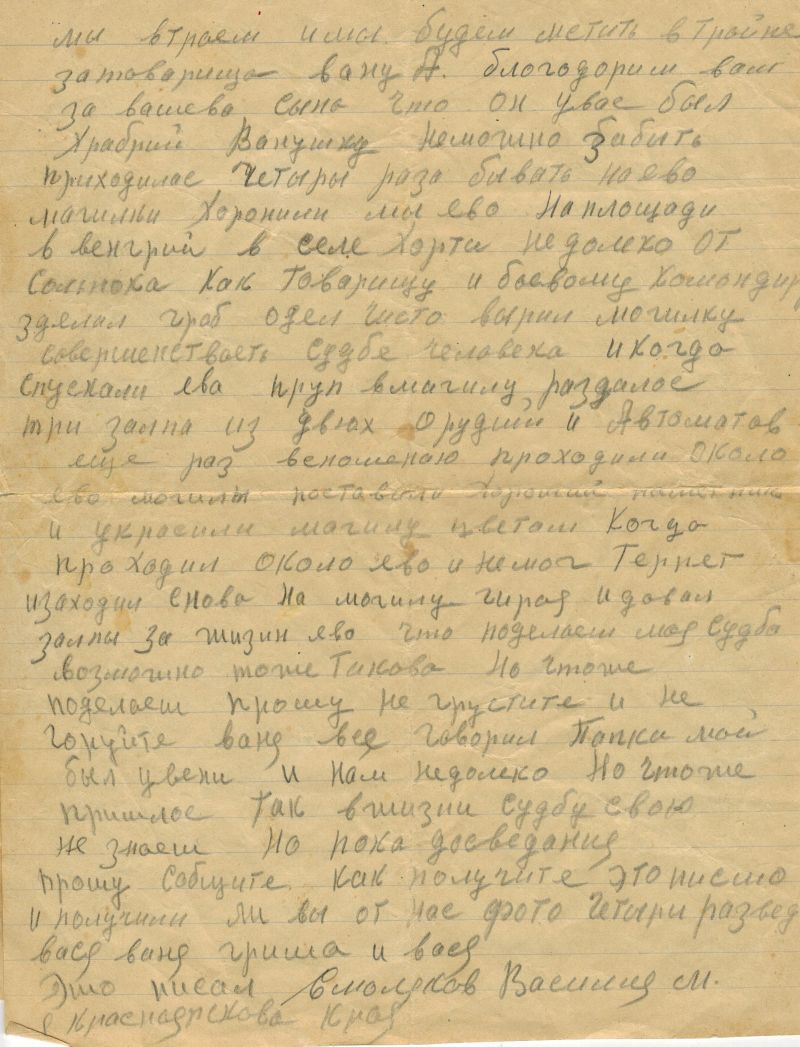 мы втроем имы будем мстить втройне
затоварища вану А. благодорим вам
за вашева сына что он увас был
Храбрий Ванушку неможно забыть
приходилас четыры раза бывать наево
магилки Хоронили мы ево На площади
в венгрий в селе Хорти недолеко от
Сольнока как товарищу и боевому командир
зделал гроб одел чисто вырил могилку
совершенстваеть судбе человека икогда
спускали ева труп вмагилу раздалос
три залпа из двюх орудий и Автоматов
еще раз вспоменаю проходили около
ево могилы поставили хороший паметник
и украсили магилу цветам Когда
проходил около ево и немог Терпет
изаходил снова на могилу гироя идавал
залпы За жизин ево что поделаеш моя судба
возможно тоже Такова Но чтоже
поделаеш прошу не грустите и не
горуйте ваня все говорил Папка мой
был увени и нам недолеко Но чтоже
пришлос так вжизни судбу свою
не знаеш Но пока досведания
прошу собщите как получите это писмо
и получили ли вы от нас фото Четыри развед
вася ваня гриша и вася
Это писал Смоляков Василия м.
я Краснаярскова Края